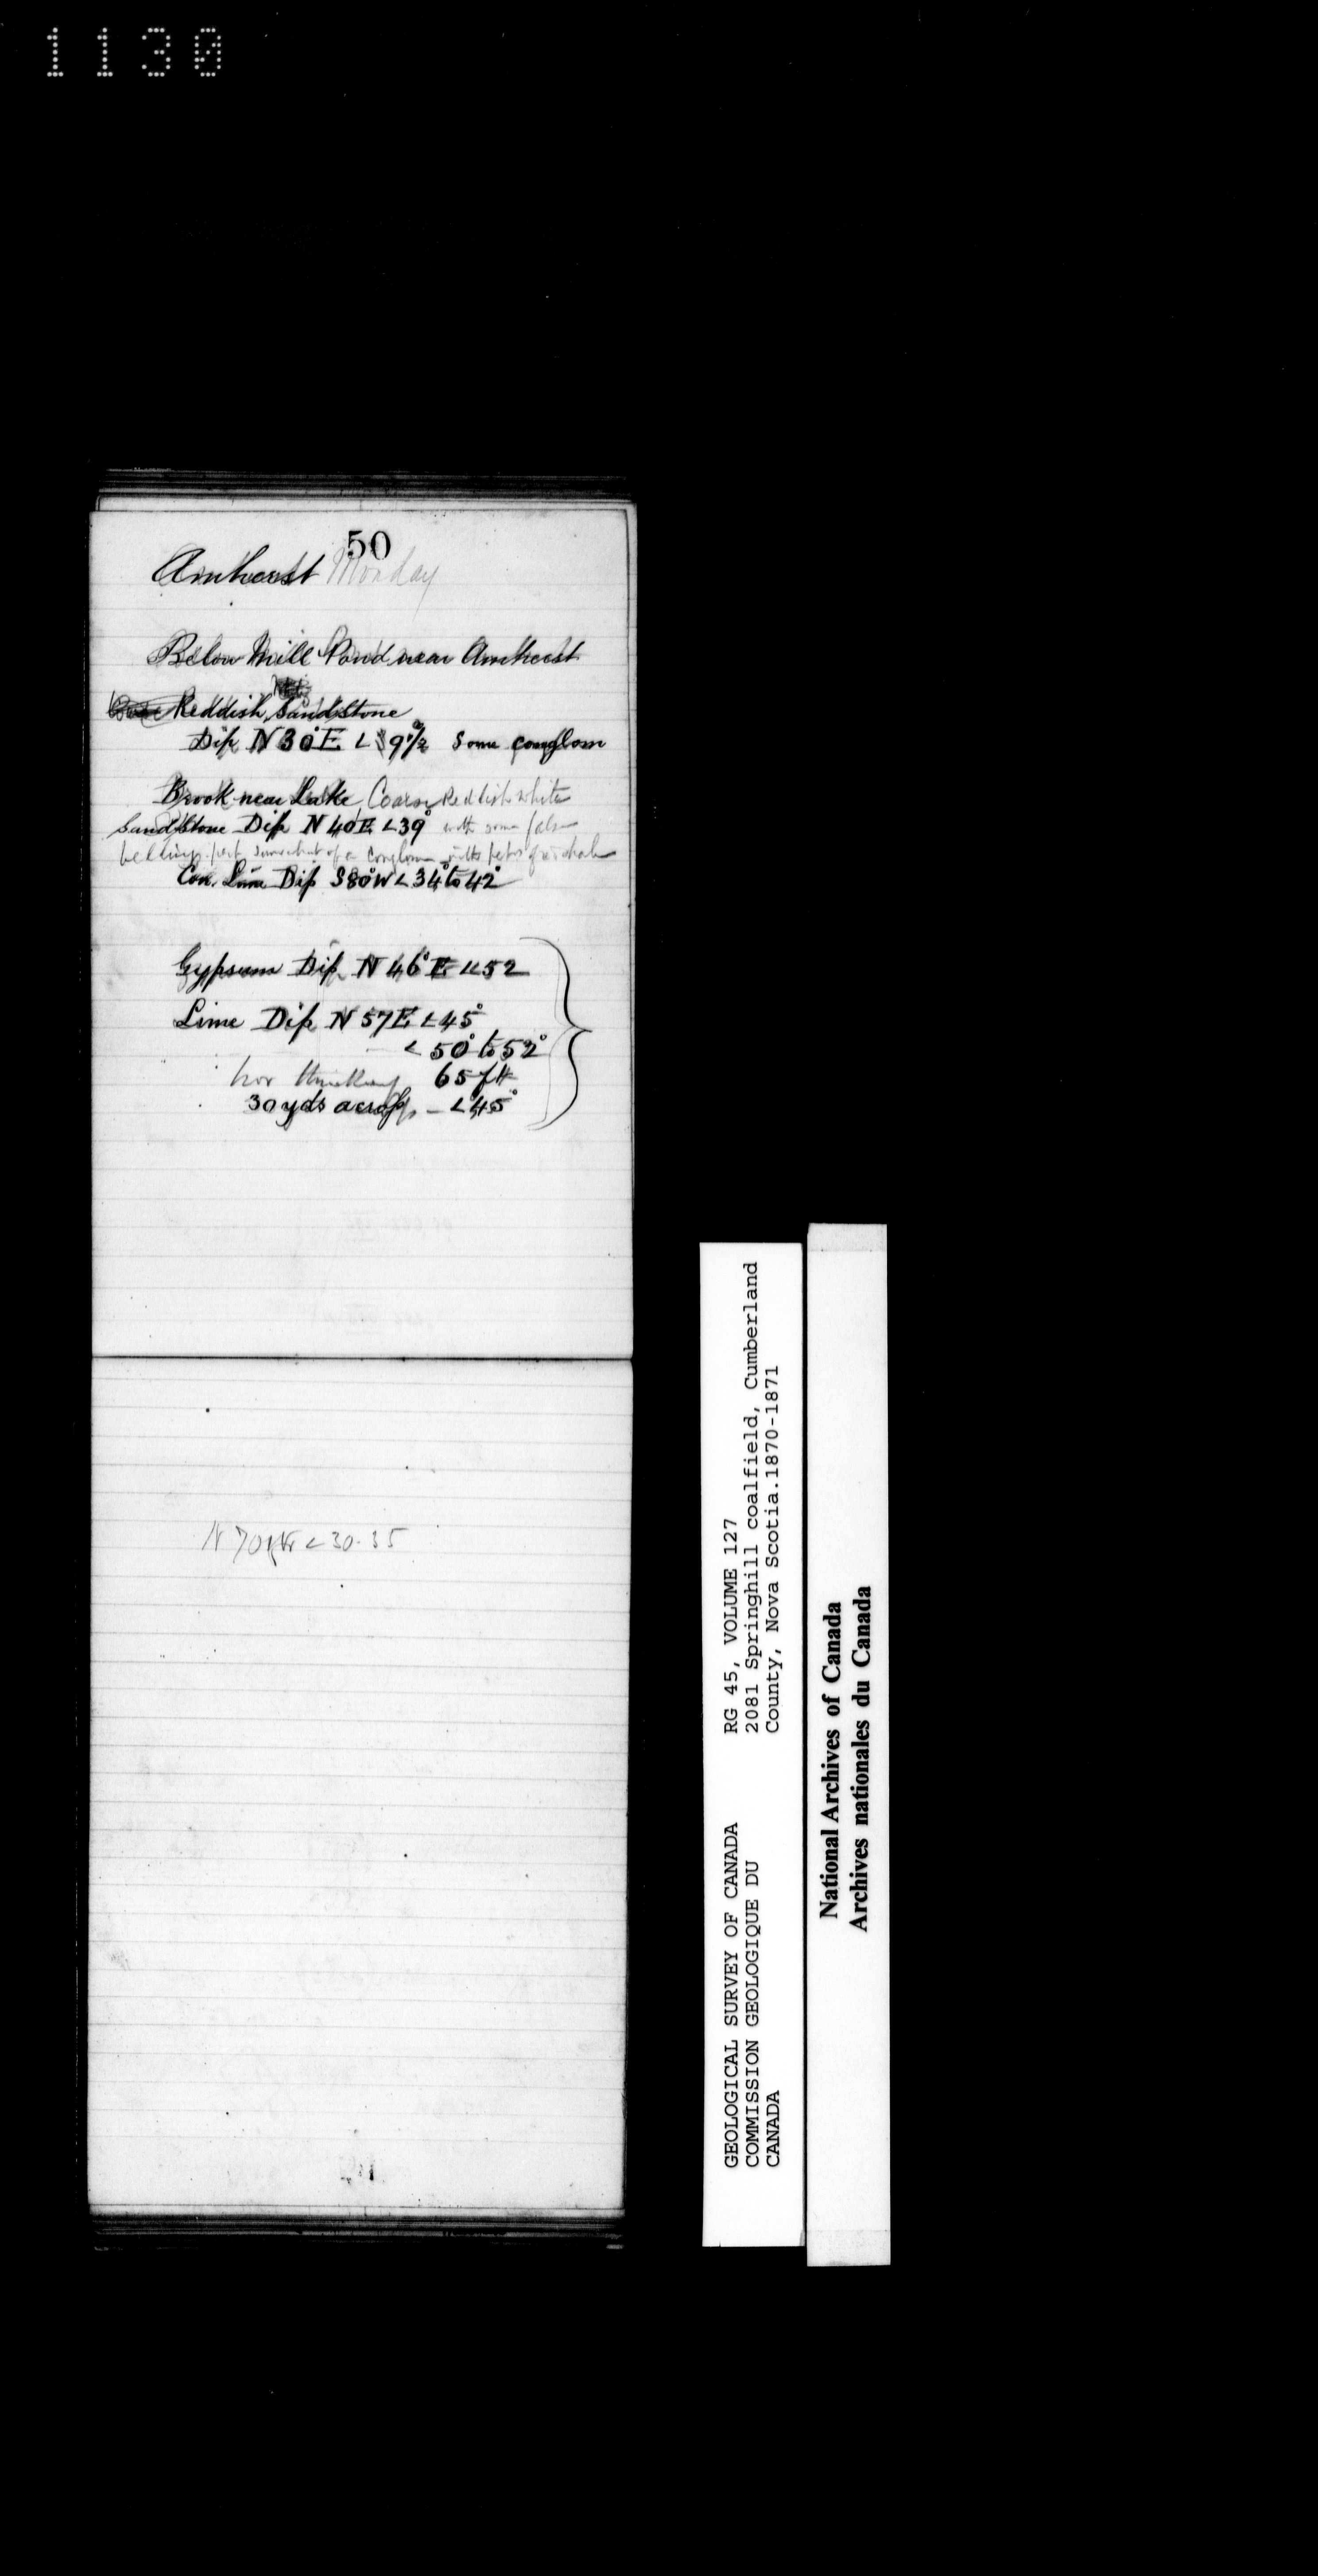 1130
50
Amherst Monday
Below Mill Pond near Amherst
Reddish Sandstone
Dip N30°E < 9°½ Some conglom
Brook near Lake, Coarse Reddish white
Sandstone Dip N40E <39° with some false
bedding part somewhat of a conglom with
Con. Lime Dip S80°W <34° to 42°
Gypsum Dip N46°E <52
Lime Dip N57E <45°
<50° to 52°
hor 65 ft
30 yds across - <45°
N70 <30.35
GEOLOGICAL SURVEY OF CANADA
COMMISSION GEOLOGIQUE DU
CANADA
RG 45, VOLUME 127
2081 Springhill coalfield, Cumberland
County, Nova Scotia.1870-1871
National Archives of Canada
Archives nationales du Canada